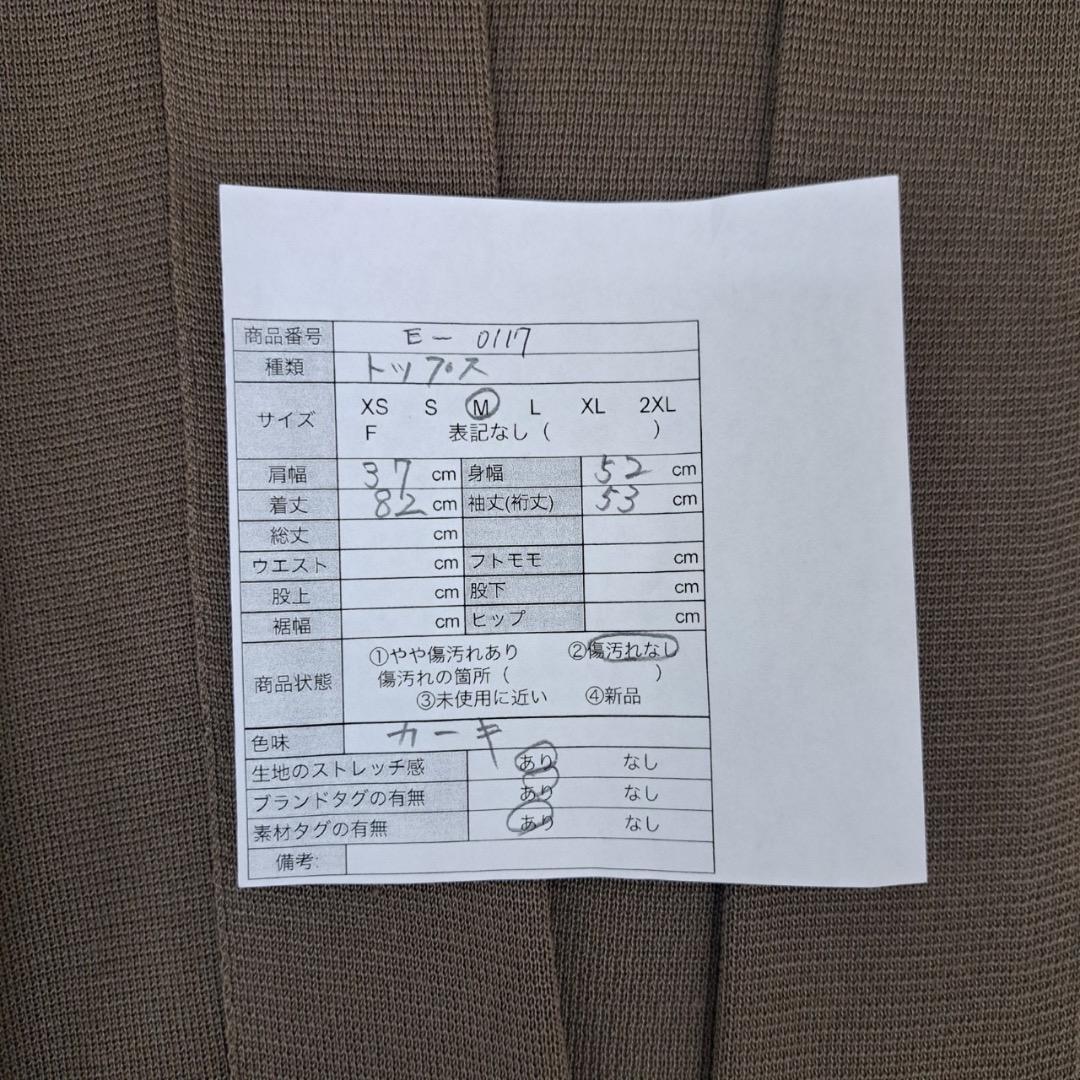 商品番号 E-0117
種類 トップス
サイズ XS S M L XL 2XL
F 表記なし ( )
肩幅 37 cm 身幅 52 cm
着丈 82 cm 袖丈(裄丈) 53 cm
総丈 cm
ウエスト cm フトモモ cm
股上 cm 股下 cm
裾幅 cm ヒップ cm
商品状態 ①やや傷汚れあり ②傷汚れなし
傷汚れの箇所 ( )
③未使用に近い ④新品
色味 カーキ
生地のストレッチ感 あり なし
ブランドタグの有無 あり なし
素材タグの有無 あり なし
備考: